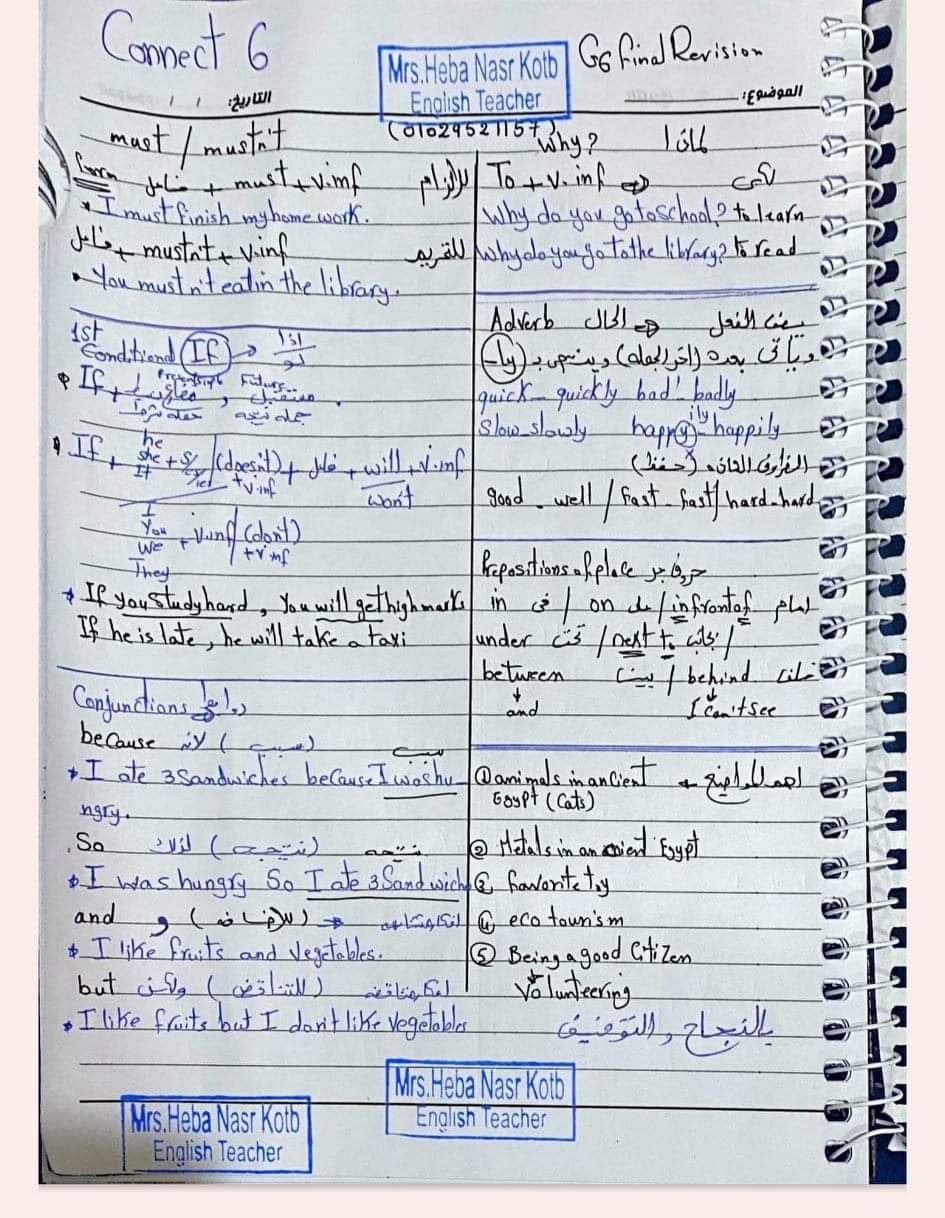 Connect 6
Mrs.Heba Nasr Kotb
English Teacher
G6 final Revision
الموضوع:
التاريخ: / /
(01029521157)
must / mustn't
form فاعل + must + v.inf للإلزام
* I must finish my home work.
فاعل + mustn't + v.inf للتحريم
• You mustn't eat in the library.
1st
Conditional If → اذا
لو
If + , Future مستقبل
جملة نتيجة
If + he
she
It + s/es/ies / (doesn't) + v.inf + فاعل + will + v.inf
won't
I
You
We
They + v.inf / (don't) + v.inf
* If you study hard, You will get high marks
If he is late, he will take a taxi
Conjunctions روابط
because لأن (سبب) سبب
* I ate 3 Sandwiches because I was hu
ngry.
So لذلك (نتيجة) نتيجة
* I was hungry So I ate 3 Sandwich
and و (للإضافة)
* I like fruits and vegetables.
but ولكن (للتناقض)
* I like fruits but I don't like vegetables
Why? لماذا
To + v.inf ⇒ لكى
Why do you go to school? to learn
Why do you go to the library? to read
Adverb الحال ⇒ يصف الفعل
ويأتى بعده (اخر الجملة) وينتهى بـ (ly-)
quick - quickly bad - badly
Slow - slowly happy - ily happily
(حفظ)
good - well / fast - fast / hard - hard
Prepositions of place حروف جر
in فى / on على / in front of امام
under تحت / next to بجانب /
between بين / behind خلف
and I can't see
اهم المواضيع
① animals in ancient
Egypt (Cats)
② Metals in an cient Egypt
③ favorite toy
④ eco tourism
⑤ Being a good Citizen
Volunteering
بالنجاح والتوفيق
Mrs.Heba Nasr Kotb
English Teacher
Mrs.Heba Nasr Kotb
English Teacher